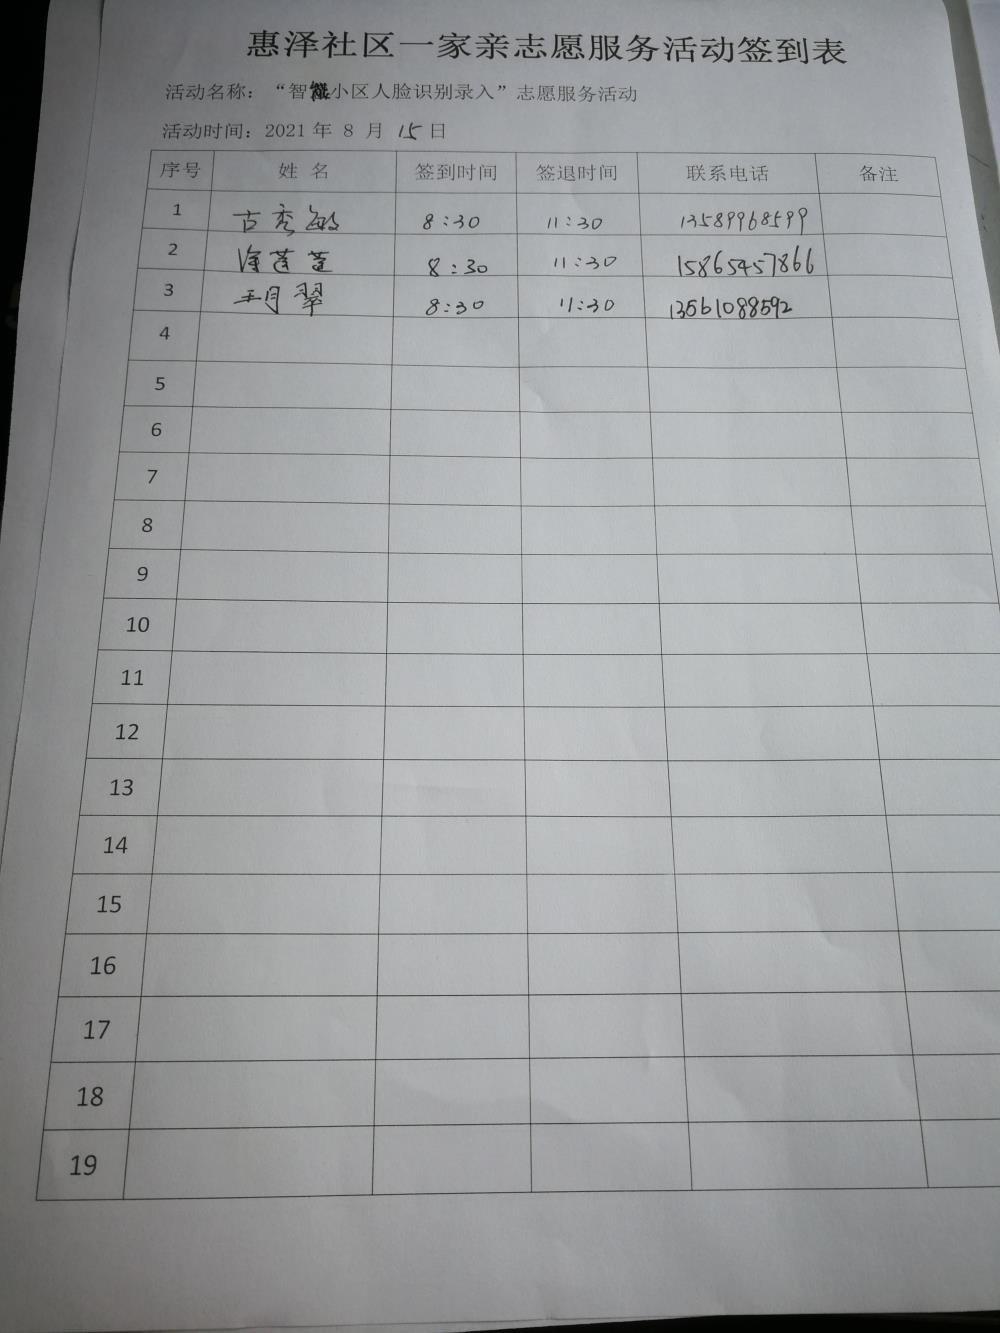 惠泽社区一家亲志愿服务活动签到表
活动名称：“智能小区人脸识别录入”志愿服务活动
活动时间：2021 年 8 月 15 日
序号 姓 名 签到时间 签退时间 联系电话 备注
1 古秀敏 8:30 11:30 13589968599
2 蓬蓬 8:30 11:30 15865457866
3 王月翠 8:30 11:30 13561088592
4
5
6
7
8
9
10
11
12
13
14
15
16
17
18
19